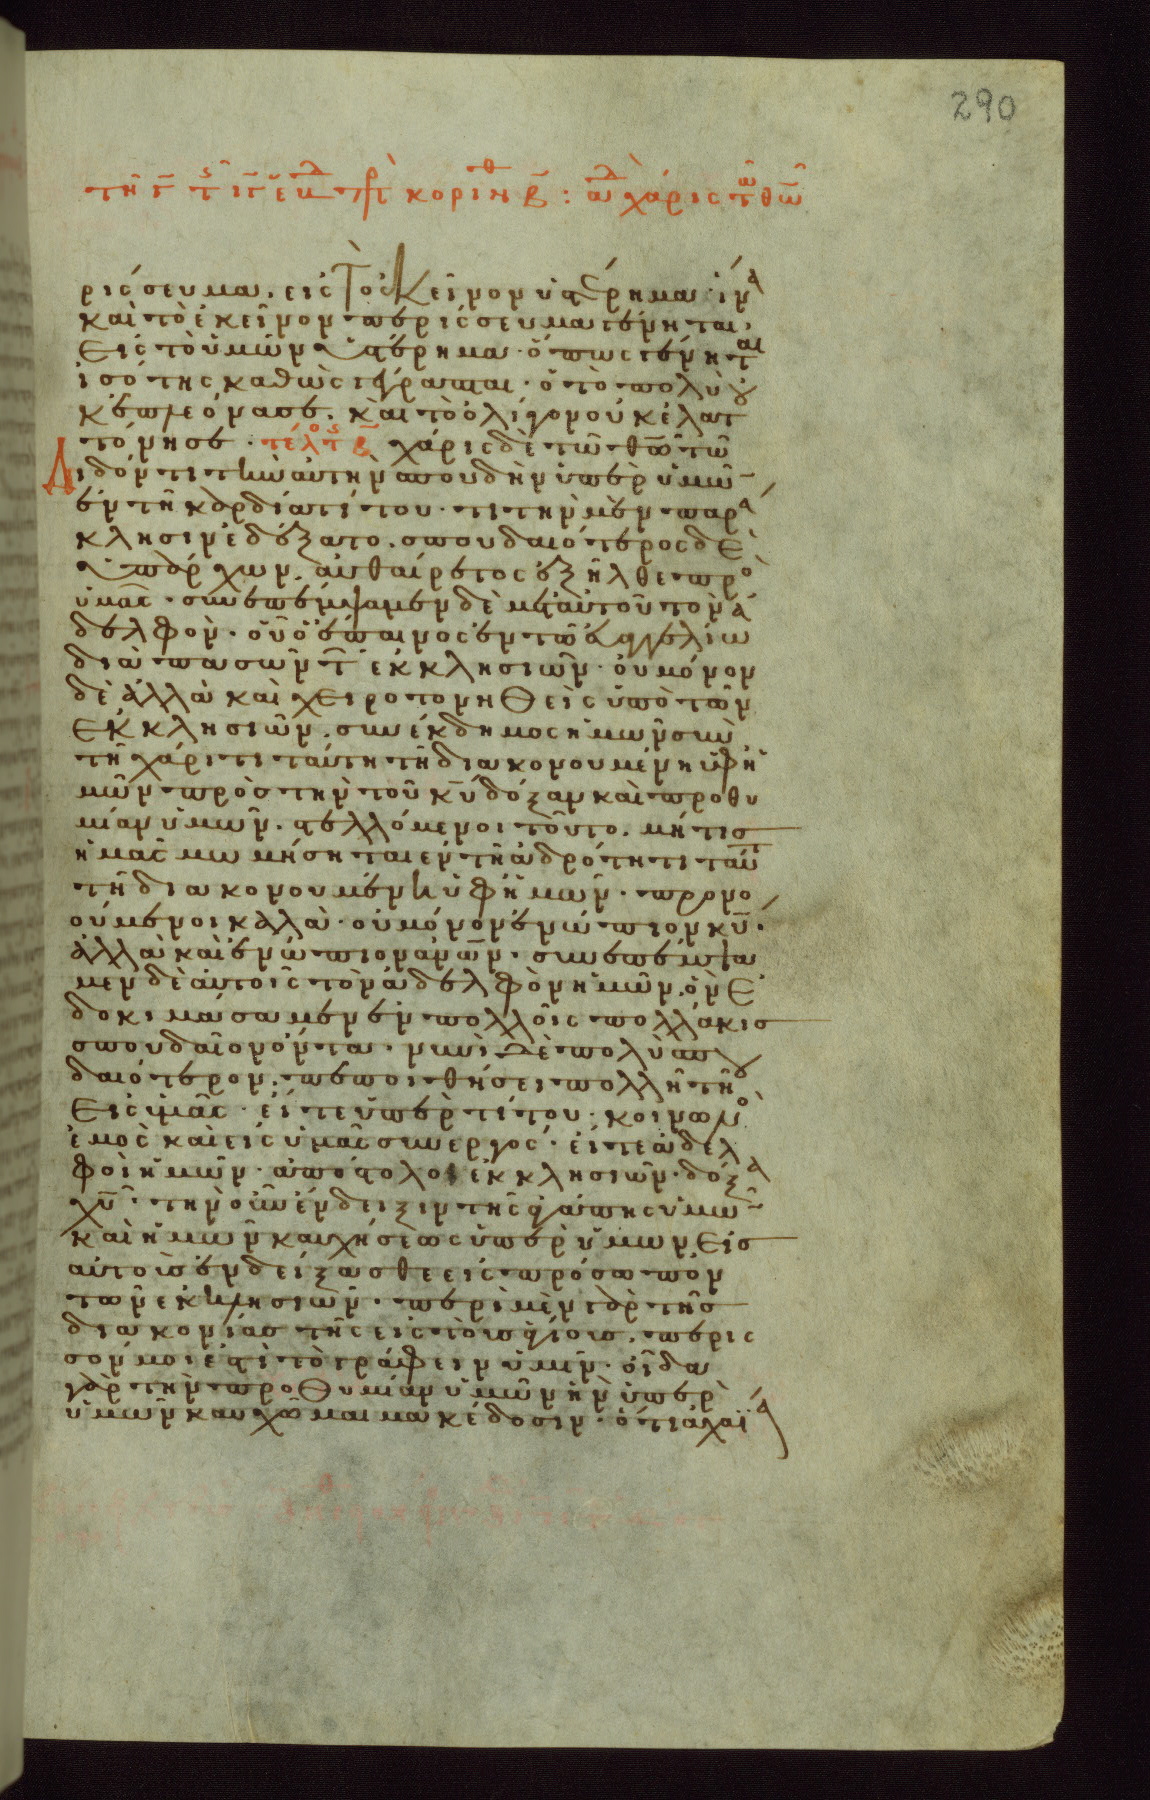 290
τῆ γ τῆς ιγ ἑβδ πρ κοριν θ β : ἀδ χάρις τῶ θω
ρίσσευμα. εἰς τὸ ἐκείνων ὑστέρημα· ἵνα
καὶ τὸ ἐκείνων περίσσευμα γένηται.
εἰς τὸ ὑμῶν ὑστέρημα· ὅπως γένηται
ἰσότης καθὼς γέγραπται· ὁ τὸ πολὺ οὐ
κ ἐπλεόνασε. καὶ τὸ ὀλίγον οὐκ ἐλατ
τόνησε· τέλος τ β χάρις δὲ τῶ θῶ τῶ
διδόντι τὴν αὐτὴν σπουδὴν ὑπὲρ ὑμῶν
ἐν τῆ καρδία τίτου· ὅτι τὴν μὲν παρα
κλησιν ἐδέξατο. σπουδαιότερος δὲ
ὑπάρχων. αὐθαίρετος ἐξῆλθε πρὸ
ὑμᾶς· συνεπέμψαμεν δὲ μετ αὐτοῦ τὸν ἀ
δελφὸν. οὗ ὁ ἔπαινος ἐν τῶ εὐαγγελίω
διὰ πασῶν τῶν ἐκκλησιῶν· οὐ μόνον
δὲ ἀλλὰ καὶ χειροτονηθεὶς ὑπὸ τῶν
ἐκκλησιῶν. συνέκδημος ἡμῶν σὺν
τῆ χάριτι ταύτη τῆ διακονουμένη ὑφ ἡ
μῶν πρὸς τὴν τοῦ κυ δόξαν καὶ προθυ
μίαν ὑμῶν. στελλόμενοι τοῦτο. μή τις
ἡμᾶς μωμήσηται ἐν τῆ ἁδρότητι ταύτη
τῆ διακονουμένη ὑφ ἡμῶν· προνο
ούμενοι καλὰ· οὐ μόνον ἐνώπιον κυ·
ἀλλὰ καὶ ἐνώπιον ἀνων· συνεπέμψα
μεν δὲ αὐτοῖς τὸν ἀδελφὸν ἡμῶν. ὃν ἐ
δοκιμάσαμεν ἐν πολλοῖς πολλάκις
σπουδαῖον ὄντα. νυνὶ δὲ πολὺ σπου
δαιότερον. πεποιθήσει πολλῆ τῆ
εἰς ὑμᾶς· εἴτε ὑπὲρ τίτου. κοινωνὸς
ἐμὸς καὶ εἰς ὑμᾶς συνεργός· εἴτε ἀδελ
φοὶ ἡμῶν· ἀπόστολοι ἐκκλησιῶν. δόξα
χυ· τὴν οὖν ἔνδειξιν τῆς ἀγάπης ὑμῶν
καὶ ἡμῶν καυχήσεως ὑπὲρ ὑμῶν εἰς
αὐτοὺς ἐνδείξασθε εἰς πρόσωπον
τῶν ἐκκλησιῶν· περὶ μὲν γὰρ τῆς
διακονίας τῆς εἰς τοὺς ἁγίους. περισ
σόν μοι ἐστὶ τὸ γράφειν ὑμῖν· οἶδα
γὰρ τὴν προθυμίαν ὑμῶν ἣν ὑπὲρ
ὑμῶν καυχῶμαι μακεδόσιν· ὅτι ἀχαΐα